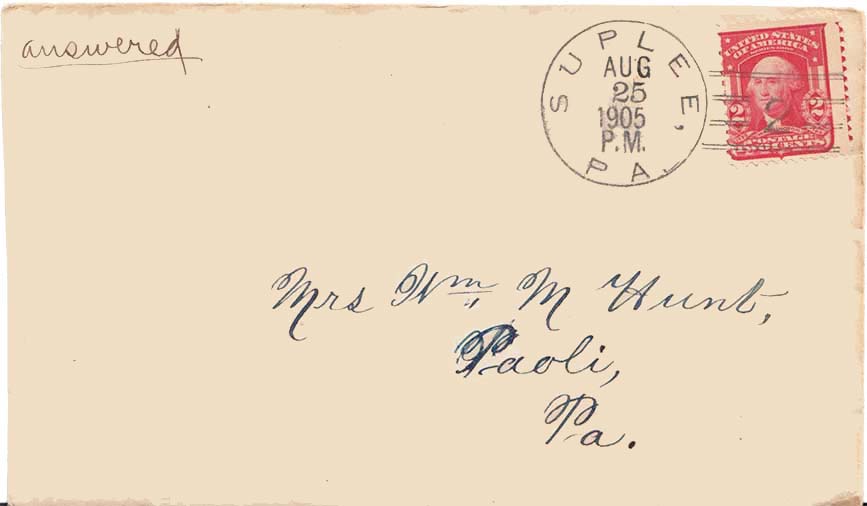 answered
SUPLEE,
AUG
25
1905
P.M.
PA.
UNITED STATES
OF AMERICA
2 2
2
CENTS
Mrs Wm. M Hunt,
Paoli,
Pa.